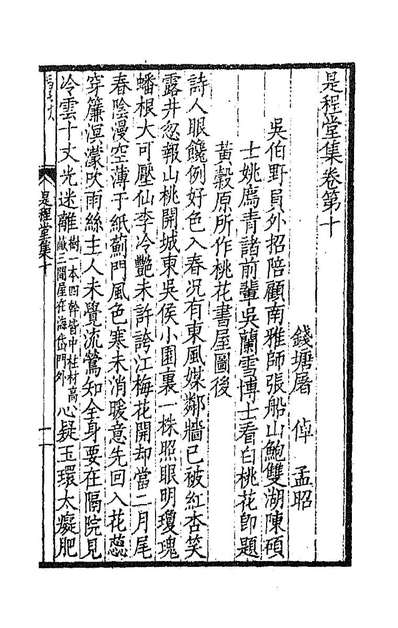 是程堂集卷第十
錢塘屠倬孟昭
吳伯野員外招陪顧南雅師張船山鮑雙湖陳碩
士姚廌青諸前輩吳蘭雪博士看白桃花即題
黃穀原所作桃花書屋圖後
詩人眼饞例好色入春况有東風媒鄰牆已被紅杏笑
露井忽報山桃開城東吳侯小園裏一株照眼明瓊瑰
蟠根大可壓仙李冷艷未許誇江梅花開却當二月尾
春陰漫空薄于紙薊門風色寒未消暖意先回入花蕊
穿簾溟濛吹雨絲主人未覺流鶯知全身要在隔院見
冷雲十丈光迷離樹一本四幹皆中柱材高
蔽三間屋在海岱門外心疑玉環太癡肥
是程堂集十
一